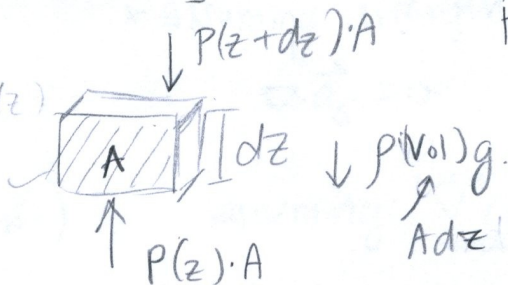 P(z+dz)·A
z)
A
dz
ρ(Vol)g.
Adz
P(z)·A